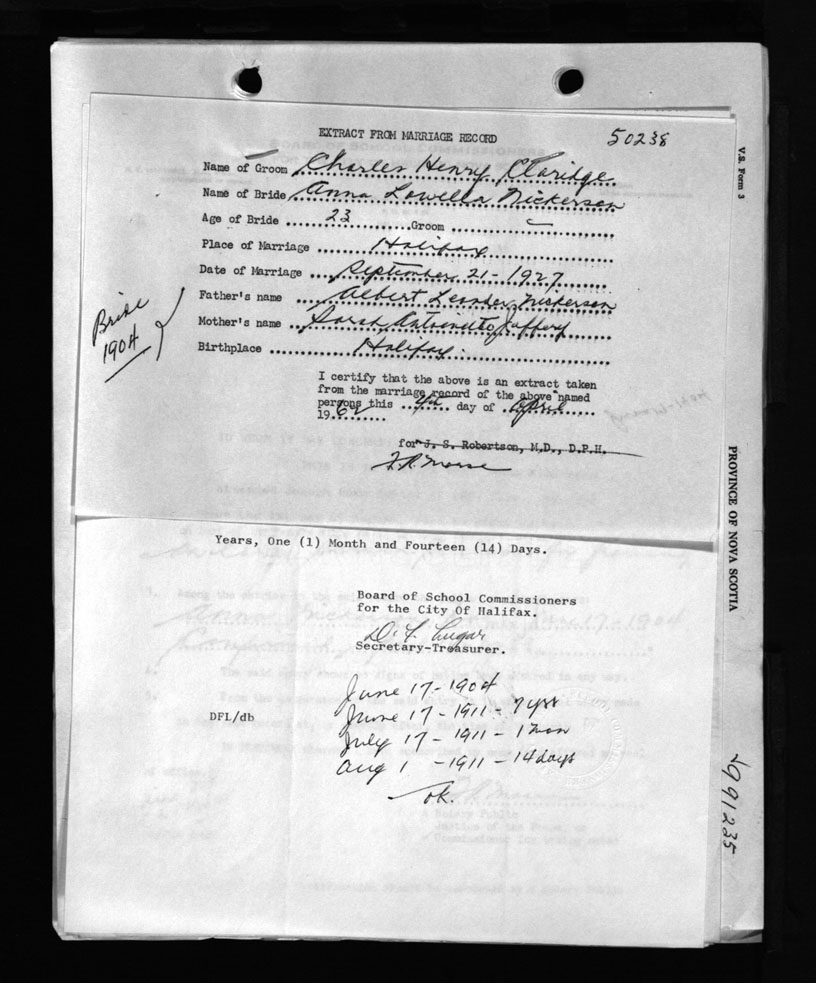 EXTRACT FROM MARRIAGE RECORD
50238
Name of Groom Charles Henry Claridge
Name of Bride Anna Lowella Nickerson
Age of Bride 23 Groom
Place of Marriage Halifax
Date of Marriage September 21-1927
Father's name Albert Leander Nickerson
Mother's name Sarah Antoinette Jaffery
Birthplace Halifax
Bride
1904
I certify that the above is an extract taken
from the marriage record of the above named
persons this 4th day of April
1962
for J. S. Robertson, M.D., D.P.H.
Years, One (1) Month and Fourteen (14) Days.
Board of School Commissioners
for the City Of Halifax.
Secretary-Treasurer.
June 17-1904
June 17-1911-7 yrs
July 17-1911-1 mon
Aug 1 -1911-14 days
ok.
DFL/db
V.S. Form 3
PROVINCE OF NOVA SCOTIA